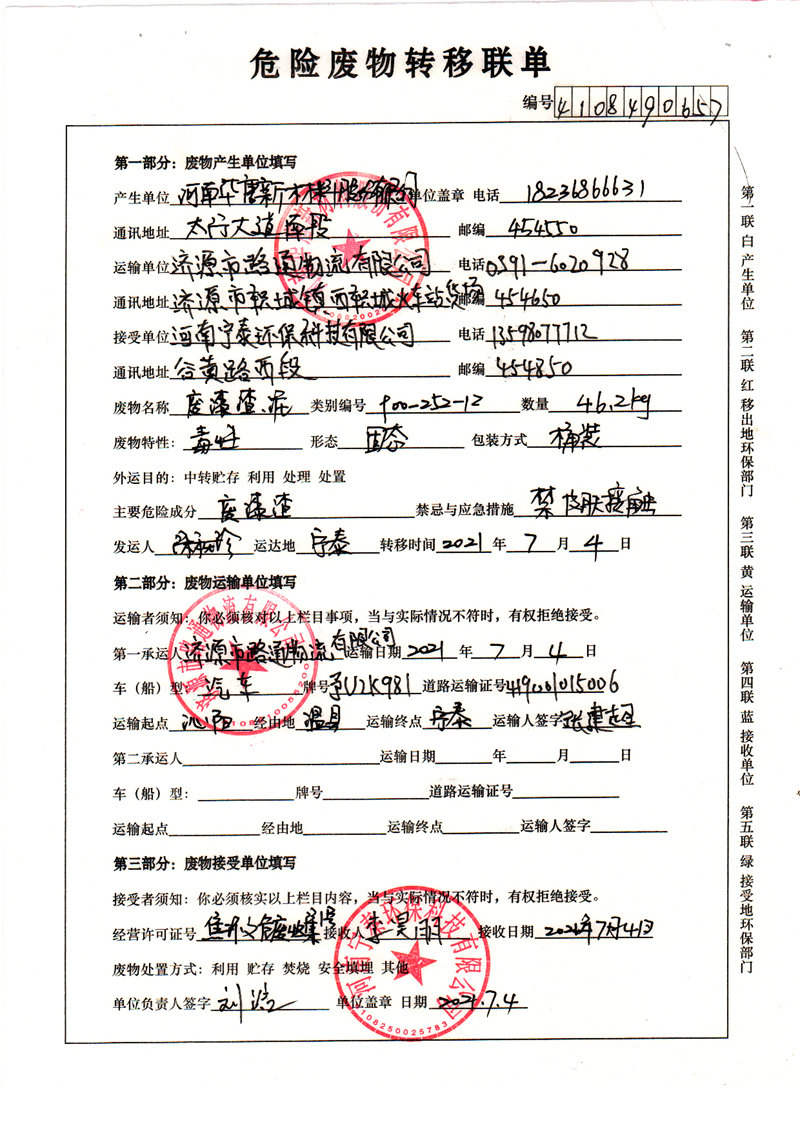 危险废物转移联单
编号 4108490657
第一部分：废物产生单位填写
产生单位 河南华唐新材料股份有限公司 单位盖章 电话 18236866631
通讯地址 太行大道南段 邮编 454550
运输单位 济源市路通物流有限公司 电话 0391-6020928
通讯地址 济源市轵城镇西轵城火车站货场 邮编 454650
接受单位 河南宁泰环保科技有限公司 电话 13598077712
通讯地址 谷黄路西段 邮编 454850
废物名称 废漆渣 类别编号 900-252-12 数量 46.2kg
废物特性： 毒性 形态 固态 包装方式 桶装
外运目的：中转贮存 利用 处理 处置
主要危险成分 废漆渣 禁忌与应急措施 禁皮肤接触
发运人 运达地 宁泰 转移时间 2021 年 7 月 4 日
第二部分：废物运输单位填写
运输者须知：你必须核对以上栏目事项，当与实际情况不符时，有权拒绝接受。
第一承运人 济源市路通物流有限公司 运输日期 2021 年 7 月 4 日
车（船）型： 汽车 牌号 豫U2K981 道路运输证号 419001015006
运输起点 沁阳 经由地 温县 运输终点 宁泰 运输人签字
第二承运人 运输日期 年 月 日
车（船）型： 牌号 道路运输证号
运输起点 经由地 运输终点 运输人签字
第三部分：废物接受单位填写
接受者须知：你必须核实以上栏目内容，当与实际情况不符时，有权拒绝接受。
经营许可证号 接收人 李昊明 接收日期 2021年7月4日
废物处置方式：利用 贮存 焚烧 安全填埋 其他
单位负责人签字 单位盖章 日期 2021.7.4
第一联 白 产生单位
第二联 红 移出地环保部门
第三联 黄 运输单位
第四联 蓝 接收单位
第五联 绿 接受地环保部门
河南宁泰环保科技有限公司
4108250025783